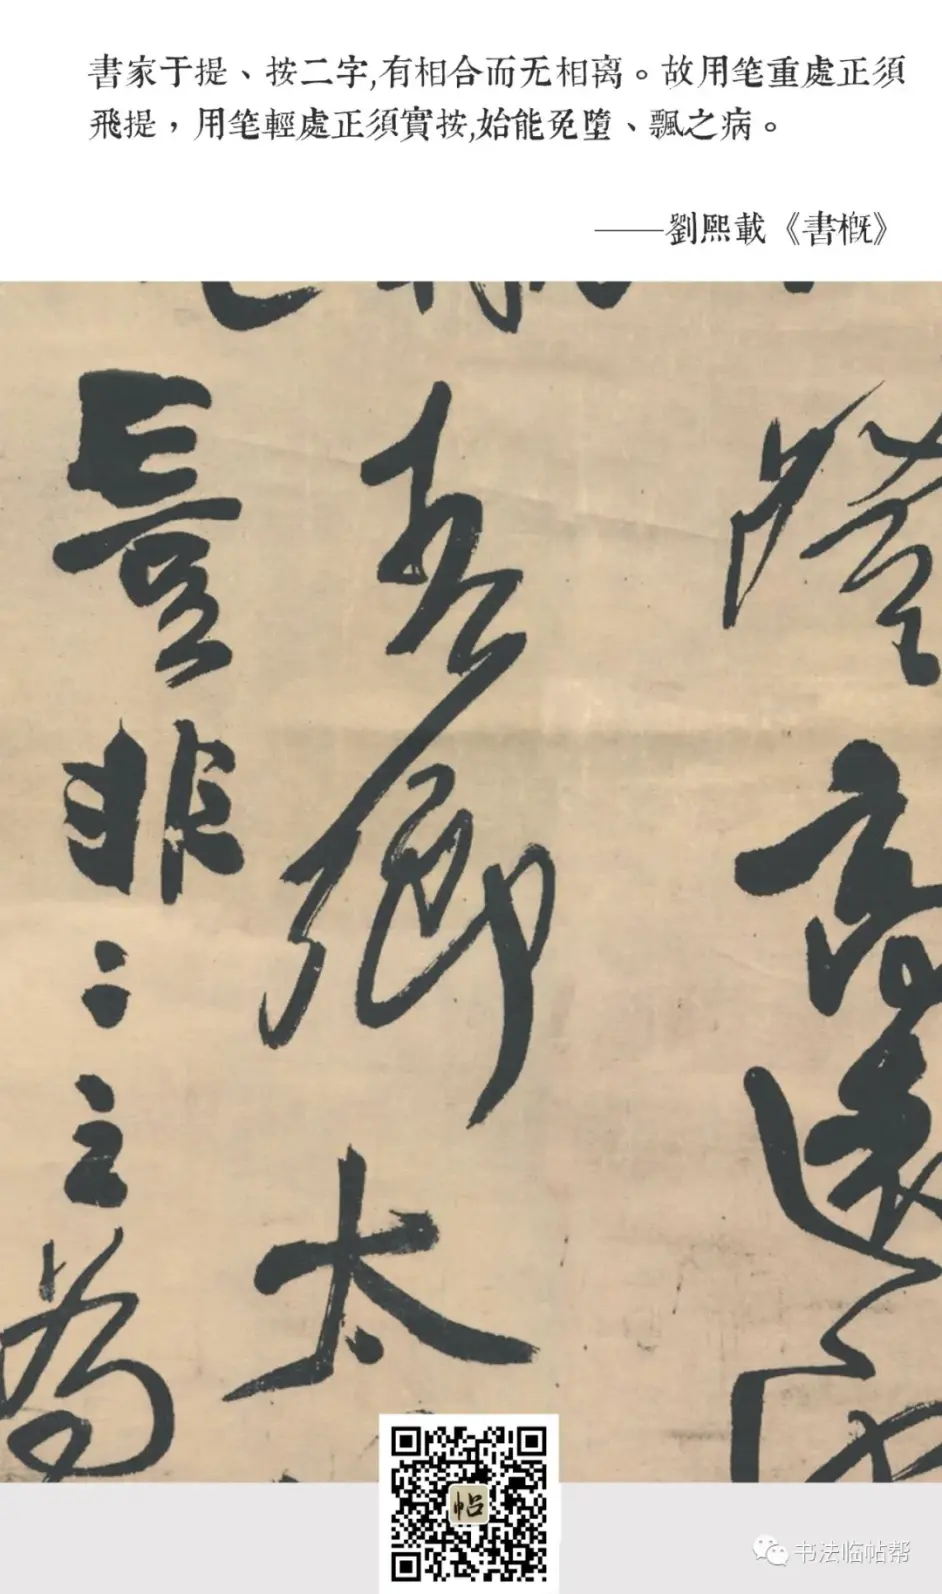 書家于提、按二字,有相合而无相离。故用笔重處正須
飛提，用笔輕處正須實按,始能免墮、飄之病。
——劉熙載《書概》
高遠
吾卿太
長非〻之為
帖
书法临帖帮